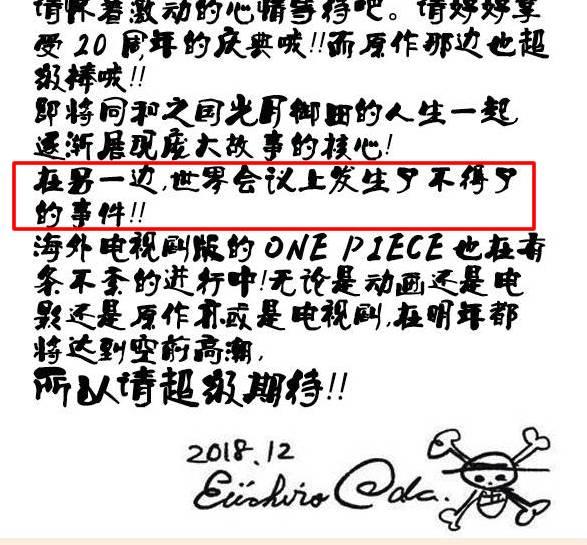 请怀着激动的心情等待吧。请好好享
受20周年的庆典哦!!而原作那边也超
级棒哦!!
即将同和之国光月御田的人生一起,
逐渐展现庞大故事的核心!
在另一边,世界会议上发生了不得了
的事件!!
海外电视剧版的ONE PIECE也在有
条不紊的进行中!无论是动画还是电
影还是原作亦或是电视剧,在明年都
将达到空前高潮,
所以请超级期待!!
2018.12
Eiichiro Oda.